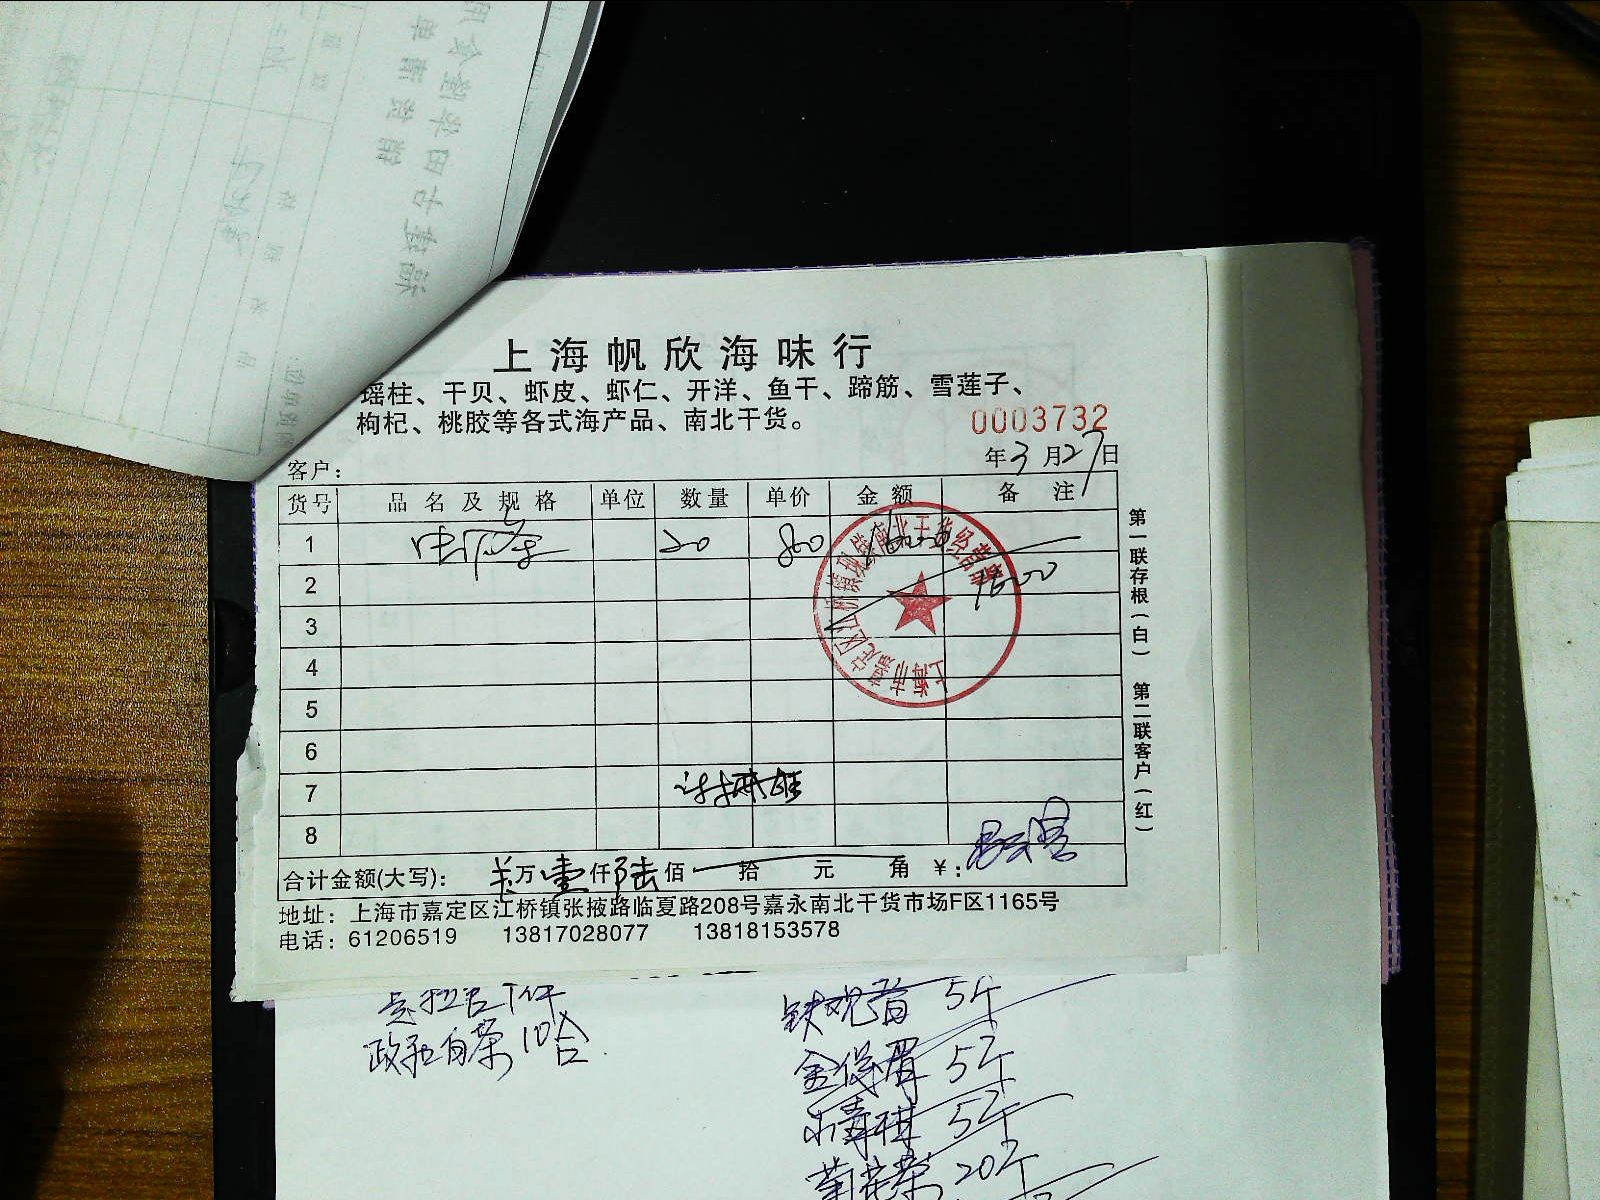 上海帆欣海味行
瑶柱、干贝、虾皮、虾仁、开洋、鱼干、蹄筋、雪莲子、
枸杞、桃胶等各式海产品、南北干货。
0003732
年3月27日
客户：
货号 品名及规格 单位 数量 单价 金额 备注
1 20 800
2 1600
3
4
5
6
7
8
合计金额(大写)： 万壹仟陆佰 拾 元 角 ￥：
地址：上海市嘉定区江桥镇张掖路临夏路208号嘉永南北干货市场F区1165号
电话：61206519 13817028077 13818153578
第一联存根（白） 第二联客户（红）
政和白茶10合
铁观音 5斤
金俊眉 5斤
5斤
菊花茶 20斤